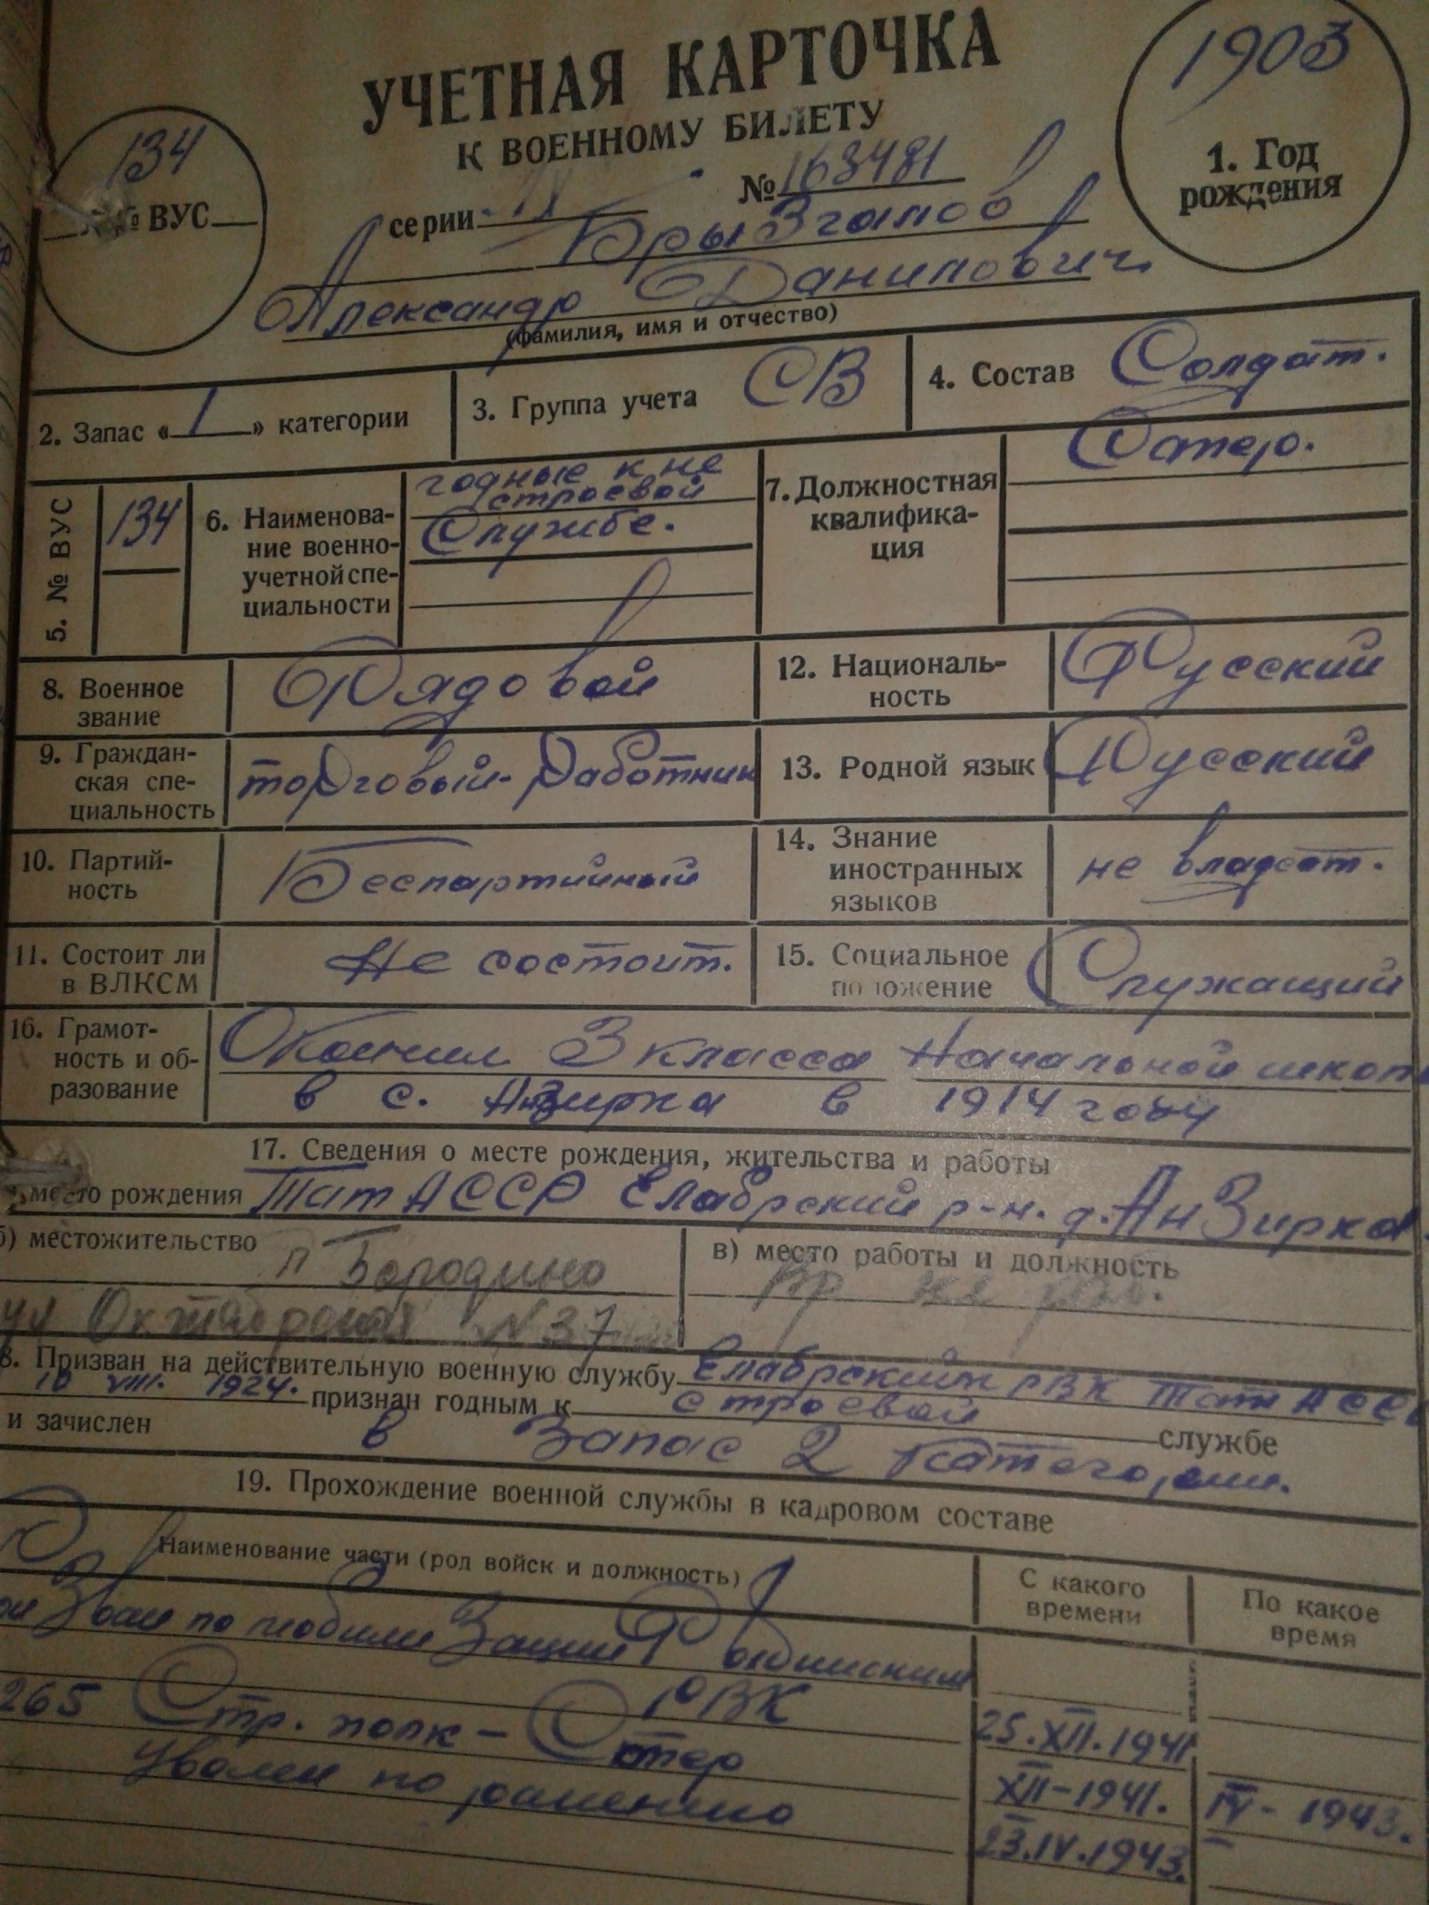 УЧЕТНАЯ КАРТОЧКА
К ВОЕННОМУ БИЛЕТУ
1903
1. Год
рождения
134
№ ВУС
серии IX № 168481
Брызгалов
Александр Данилович
(фамилия, имя и отчество)
2. Запас « 1 » категории
3. Группа учета СВ
4. Состав Солдат.
5. № ВУС 134
6. Наименова-
ние военно-
учетной спе-
циальности
годные к не
строевой
Службе.
7. Должностная
квалифика-
ция
Сапер.
8. Военное
звание
Рядовой
12. Националь-
ность
Русский
9. Граждан-
ская спе-
циальность
торговый-работник
13. Родной язык Русский
10. Партий-
ность
Беспартийный
14. Знание
иностранных
языков
не владеет.
11. Состоит ли
в ВЛКСМ
Не состоит.
15. Социальное
положение
Служащий
16. Грамот-
ность и об-
разование
Окончил 3 класса Начальной школ
в с. Анзирка в 1914 году
17. Сведения о месте рождения, жительства и работы
место рождения Тат АССР Елабрский р-н. д. АнЗирка.
б) местожительство п Бородино
ул Октябрская №37
в) место работы и должность
вр не раб.
8. Призван на действительную военную службу Елабрским РВК Тат АСС
10 VIII. 1924. признан годным к строевой службе
и зачислен в Запас 2 категории.
19. Прохождение военной службы в кадровом составе
Наименование части (род войск и должность)
С какого
времени
По какое
время
по мобили зации
РВК 25.XII.1941
265 Стр. полк - XII-1941. IV- 1943.
Уволен по 23.IV.1943.